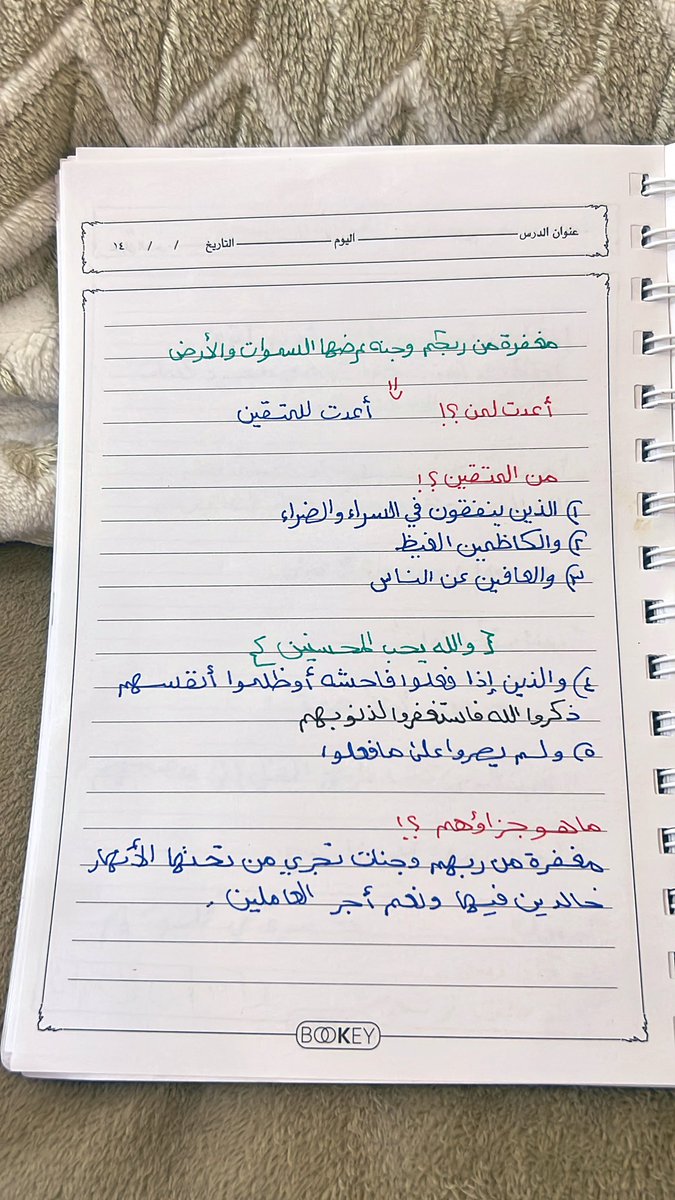 عنوان الدرس اليوم التاريخ / / ١٤
مغفرة من ربكم وجنه عرضها السموات والأرض
أعدت لمن ؟! أعدت للمتقين
من المتقين ؟!
١) الذين ينفقون في السراء والضراء
٢) والكاظمين الغيظ
٣) والعافين عن الناس
{ والله يحب المحسنين }
٤) والذين إذا فعلوا فاحشه أو ظلموا أنفسهم
ذكروا الله فاستغفروا لذنوبهم
٥) ولم يصروا على مافعلوا
ماهو جزاؤهم ؟!
مغفرة من ربهم وجنات تجري من تحتها الأنهار
خالدين فيها ونعم أجر العاملين .
BOOKEY